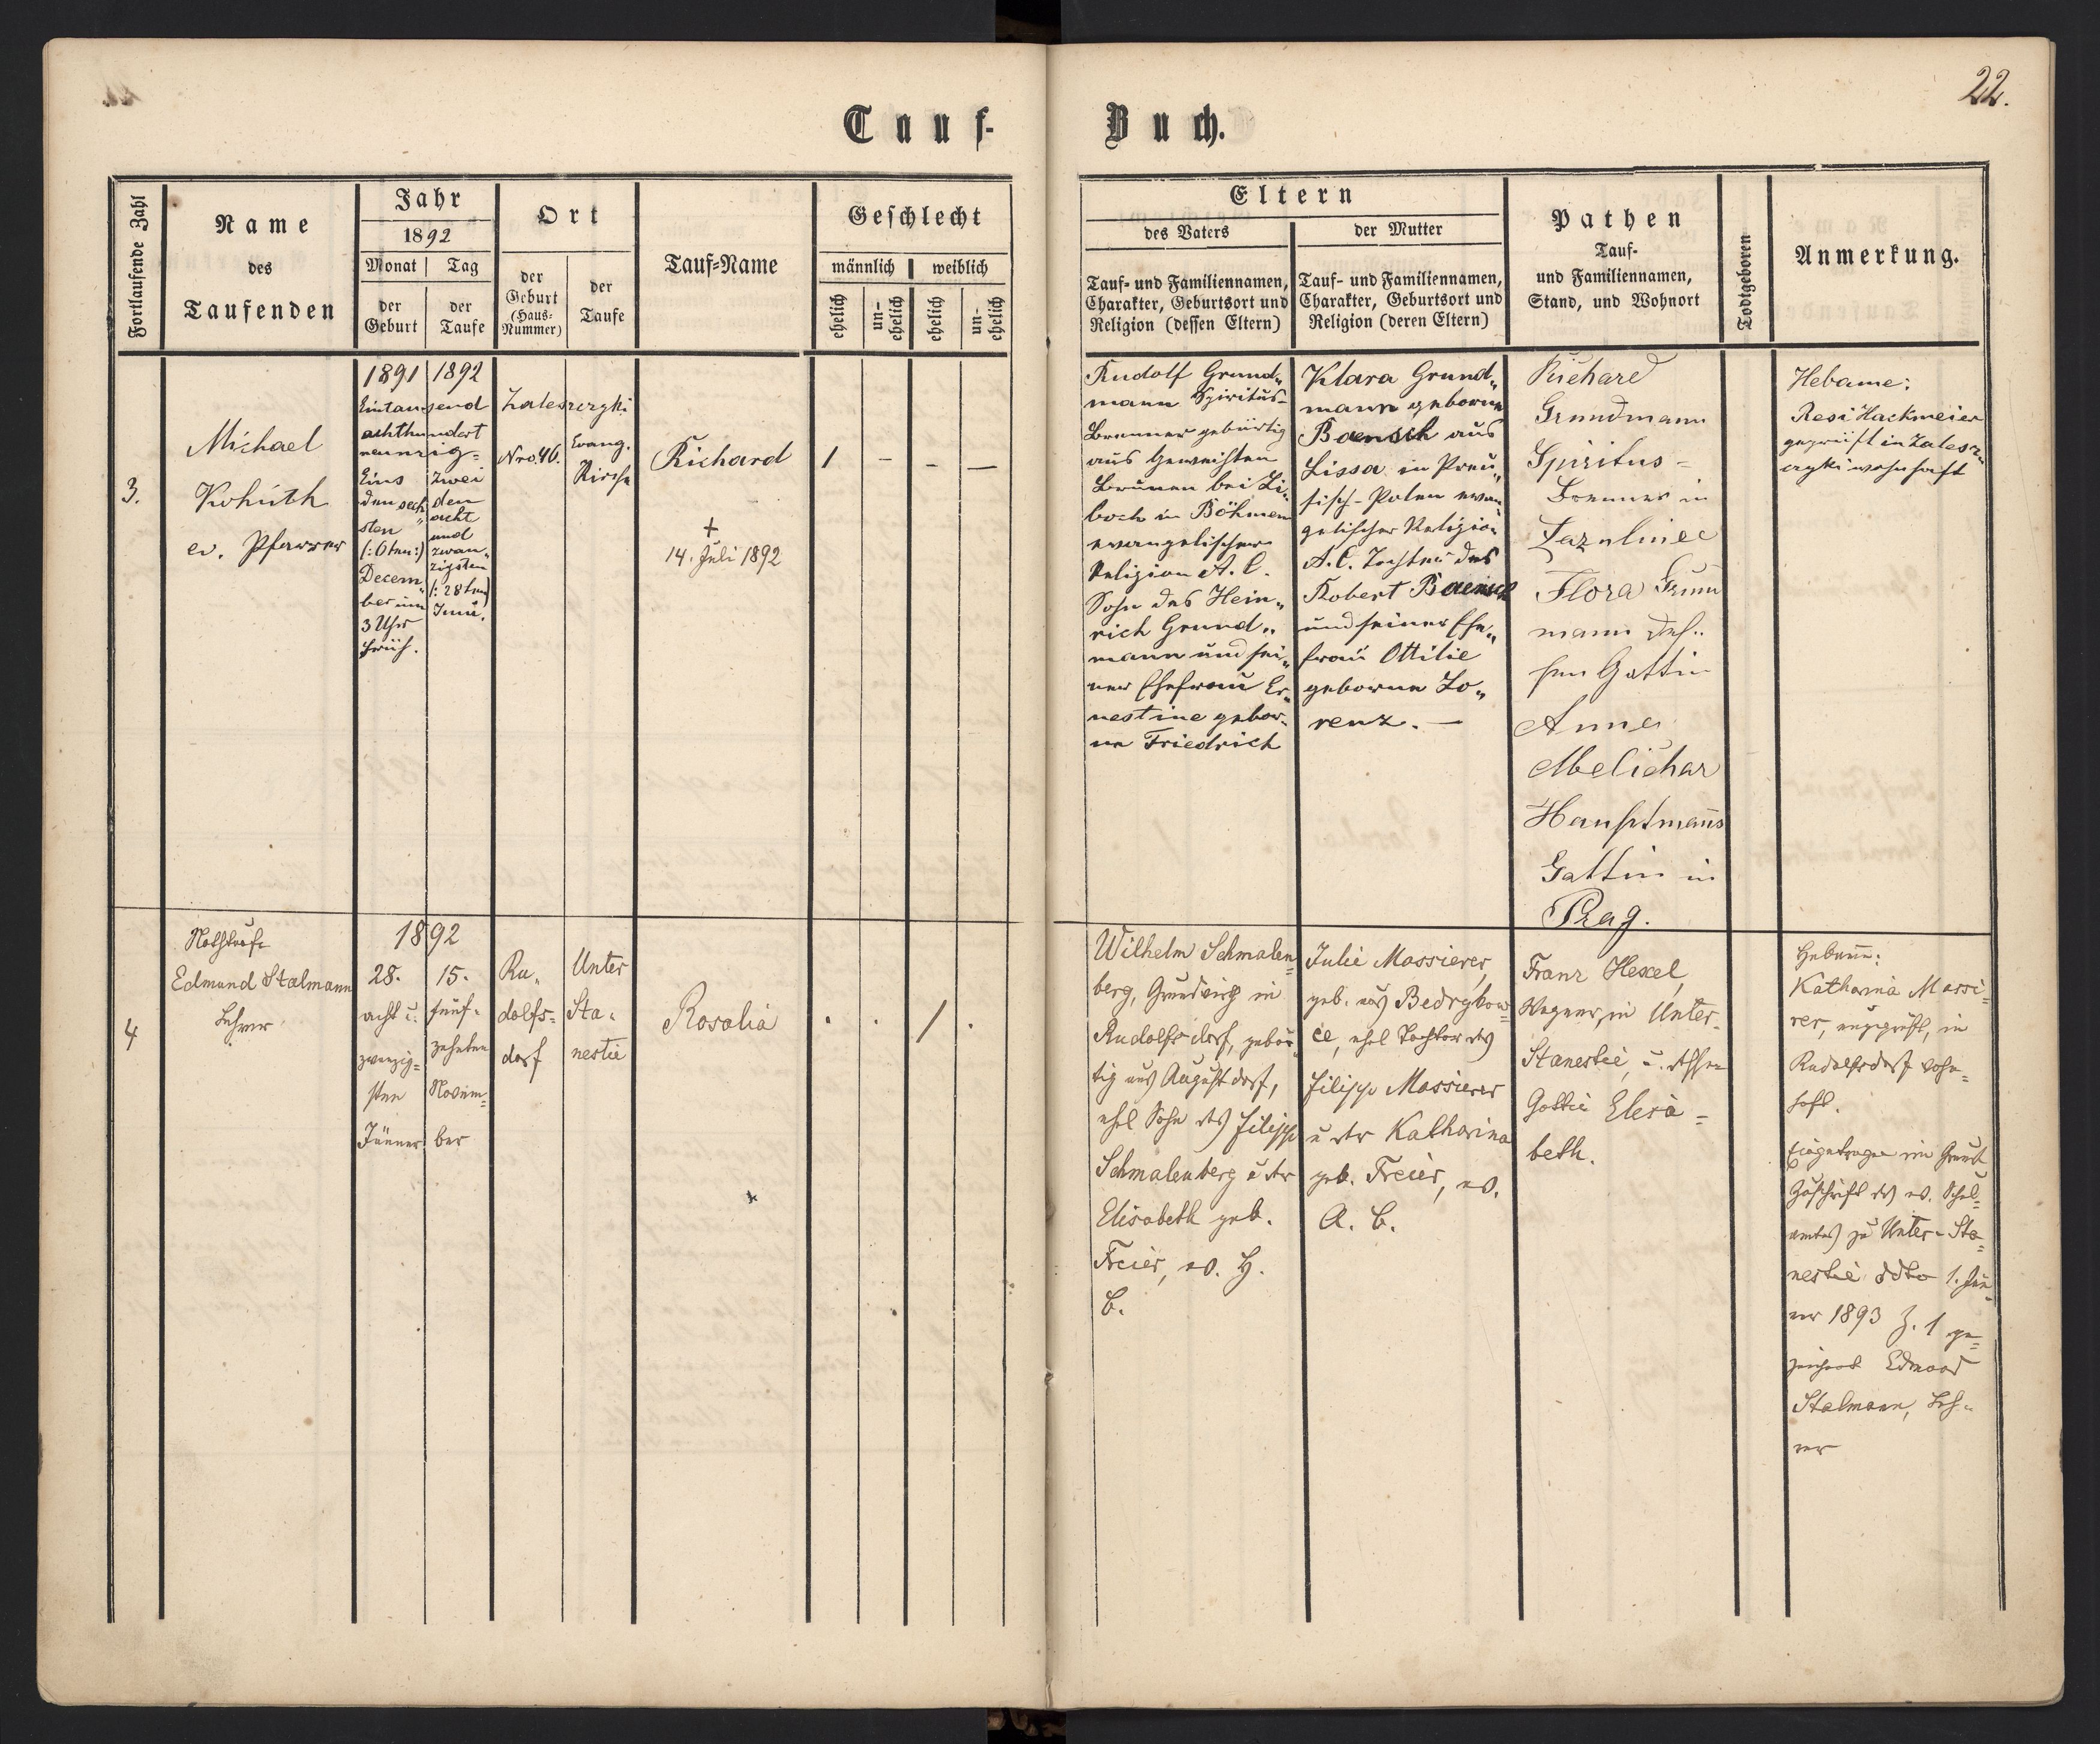 22.
Tauf-
Buch.
Fortlaufende Zahl
Name
des
Taufenden
Jahr
1892
Monat
Tag
der
Geburt
der
Taufe
Ort
der
Geburt
(Haus-
Nummer)
der
Taufe
Tauf=Name
Geschlecht
männlich
weiblich
ehelich
un-
ehelich
ehelich
un-
ehelich
Eltern
des Vaters
der Mutter
Tauf- und Familiennamen,
Charakter, Geburtsort und
Religion (dessen Eltern)
Tauf- und Familiennamen,
Charakter, Geburtsort und
Religion (deren Eltern)
Pathen
Tauf-
und Familiennamen,
Stand, und Wohnort
Todtgeboren
Anmerkung.
3.
Michael
Kohuth
ev. Pfarrer
1891
Eintausend
achthundert
neunzig=
Eins
den sech„
sten
(:6ten:)
Decem„
ber um
3 Uhr
früh.
1892
Zwei
den
acht
und
zwan„
zigsten
(:28ten)
Juni.
Zaleszczyki
Nro. 46.
Evang.
Kirche
Richard
+
14. Juli 1892
1
-
-
-
Rudolf Grund„
mann Spiritus-
Brenner gebürtig
aus Geweihten
Brunnen bei Li„
boch in Böhmen
evangelischer
Religion A. C.
Sohn des Hein„
rich Grund„
mann und sei„
ner Ehefrau Er„
nestine gebor„
ne Friedrich
Klara Grund„
mann geborne
Baensch aus
Lissa in Preu„
sisch-Polen evan„
gelischer Religion
A. C. Tochter des
Robert Baensch
und seiner Ehe„
frau Ottilie
geborne Lo„
renz. —
Richard
Grundmann
Spiritus=
Brenner in
Flora Grun
mann des..
sen Gattin
Anna
Melichar
Hauptmanns
Gattin in
Prag.
Hebame:
Resi Hackmeier
geprüft in Zalesz„
czyki wohnhaft
4
Nothtaufe
Edmund Stalmann
Lehrer
1892
28.
acht u.
zwanzig=
sten
Jänner
15.
fünf=
zehnten
Novem=
ber
Ru„
dolfs=
dorf
Unter
Sta„
nestie
Rosalia
.
.
/
.
Wilhelm Schmalen=
berg, Grundwirth in
Rudolfsdorf, gebür„
tig aus Augustdorf,
ehel Sohn des Filipp
Schmalenberg u der
Elisabeth geb.
Freier, ev. H.
B.
Julie Massierer,
geb. aus Bedrykow=
ce, ehel Tochter des
Filipp Massierer
u der Katharina
geb. Freier, ev.
A. B.
Franz Hexel,
Wagner, in Unter-
Stanestie, u. dessen
Gattin Elisa=
beth.
Hebamme:
Katharina Massi=
rer, ungeprüft, in
Rudolfsdorf wohn=
haft.
Eingetragen im Grund
Zuschrift des ev. Schul=
amtes zu Unter-Sta=
nestie ddto 1. Jän=
ner 1893 Z. 1 ge=
zeichnet Edmund
Stalmann, Leh=
rer